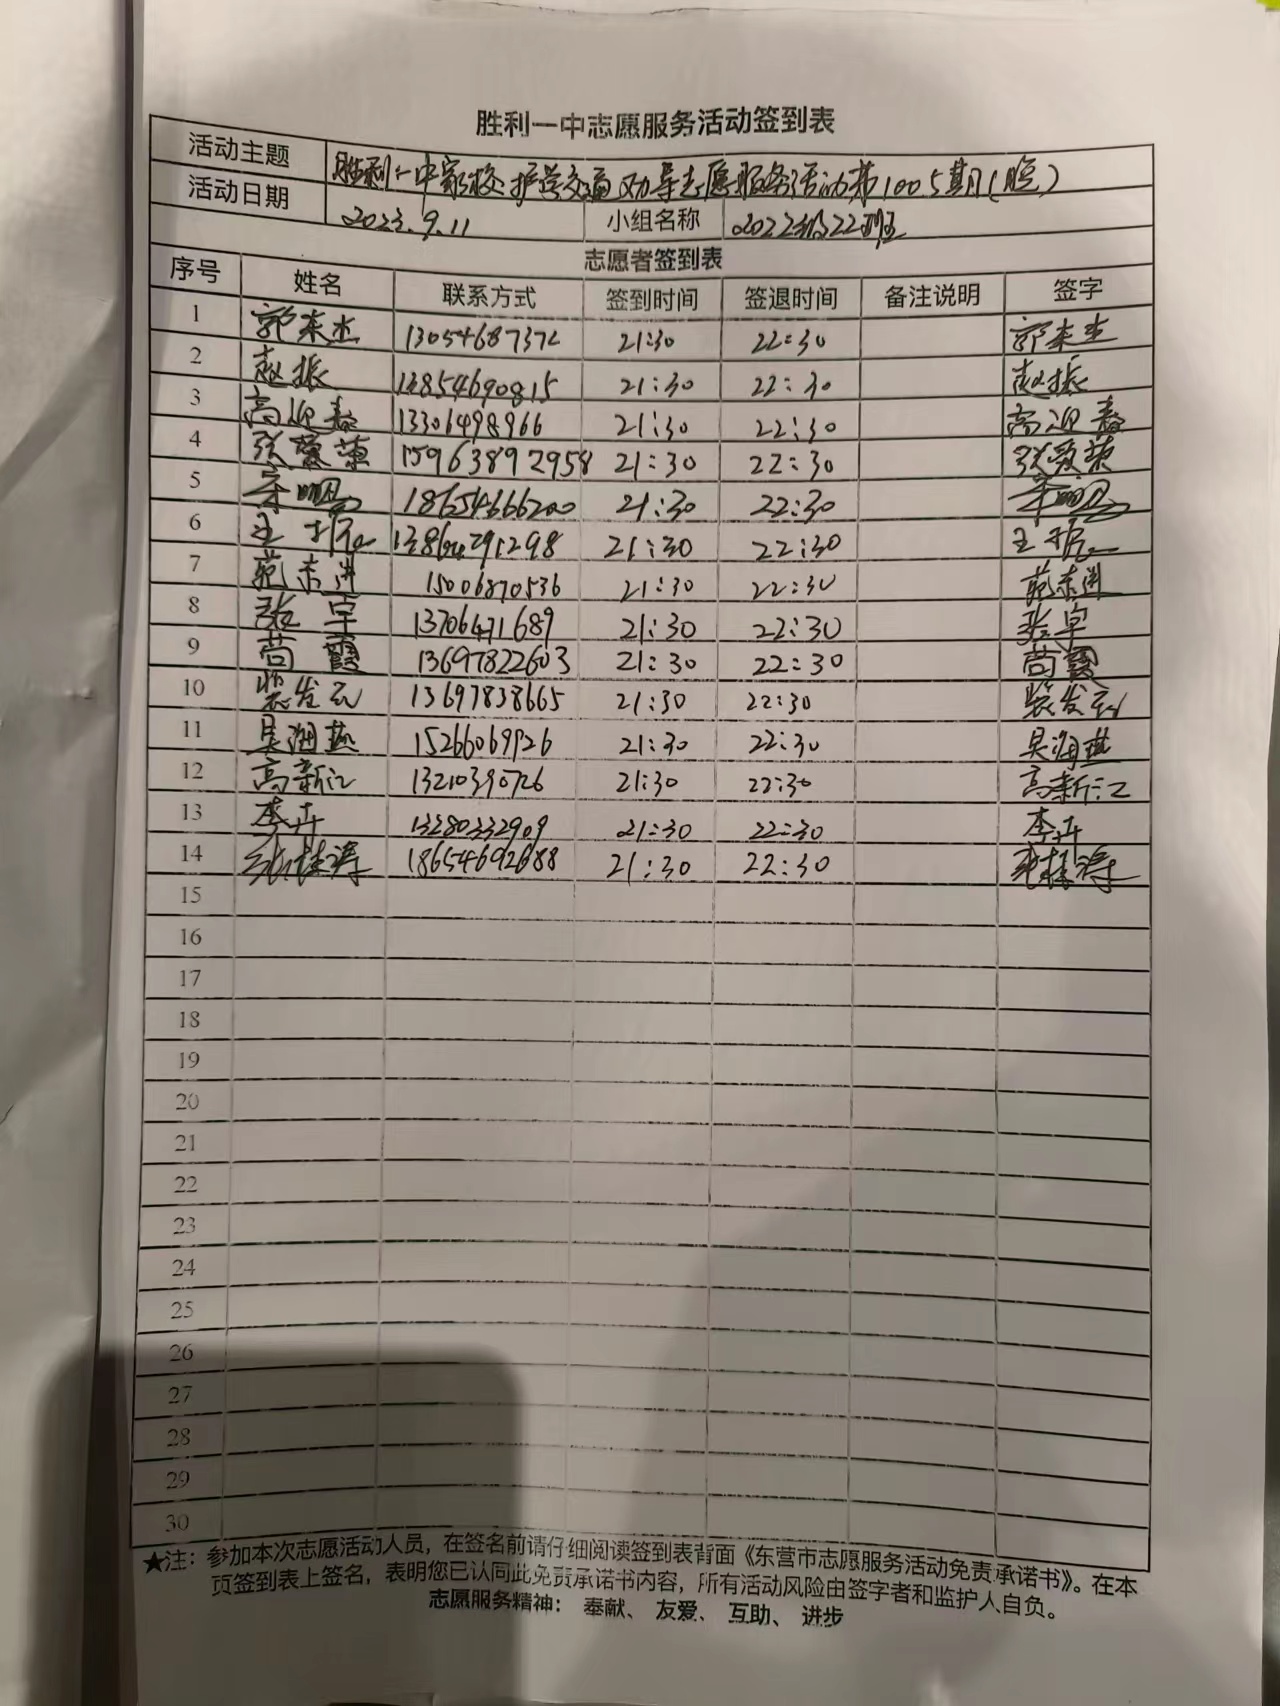 胜利一中志愿服务活动签到表
活动主题 胜利一中家校护学交通劝导志愿服务活动第1005期(晚)
活动日期 2023.9.11 小组名称 2022级22班
志愿者签到表
序号 姓名 联系方式 签到时间 签退时间 备注说明 签字
1 郭来杰 13054687372 21:30 22:30 郭来杰
2 赵振 13854690815 21:30 22:30 赵振
3 高迎春 13306498966 21:30 22:30 高迎春
4 张爱荣 15963892958 21:30 22:30 张爱荣
5 18654666200 21:30 22:30
6 王振 21:30 22:30 王振
7 15006870536 21:30 22:30
8 张宇 13706471689 21:30 22:30 张宇
9 苘霞 13697822603 21:30 22:30 苘霞
10 裴发云 13697838665 21:30 22:30 裴发云
11 吴海燕 15266069926 21:30 22:30 吴海燕
12 高新江 13210390726 21:30 22:30 高新江
13 李卉 13280332909 21:30 22:30 李卉
14 张桂涛 18654692688 21:30 22:30 张桂涛
15
16
17
18
19
20
21
22
23
24
25
26
27
28
29
30
★注：参加本次志愿活动人员，在签名前请仔细阅读签到表背面《东营市志愿服务活动免责承诺书》。在本
页签到表上签名，表明您已认同此免责承诺书内容，所有活动风险由签字者和监护人自负。
志愿服务精神：奉献、友爱、互助、进步